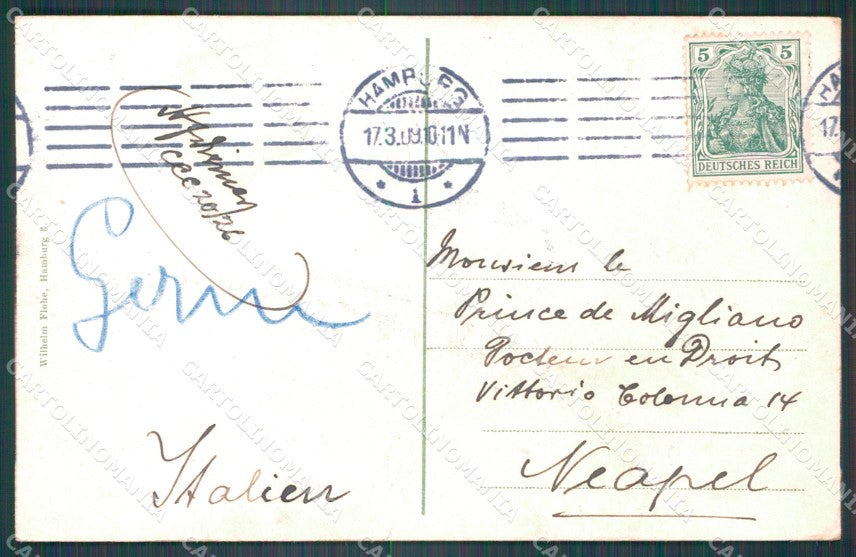 HAMBURG
17.3.09.10-11N
* 1 *
5 5
DEUTSCHES REICH
CCC 20/26
Germ
Wilhelm Flohe, Hamburg 8.
Monsieur le
Prince de Migliano
Docteur en Droit
Vittorio Colonna 14
Neapel
Italien
CARTOLINOMANIA